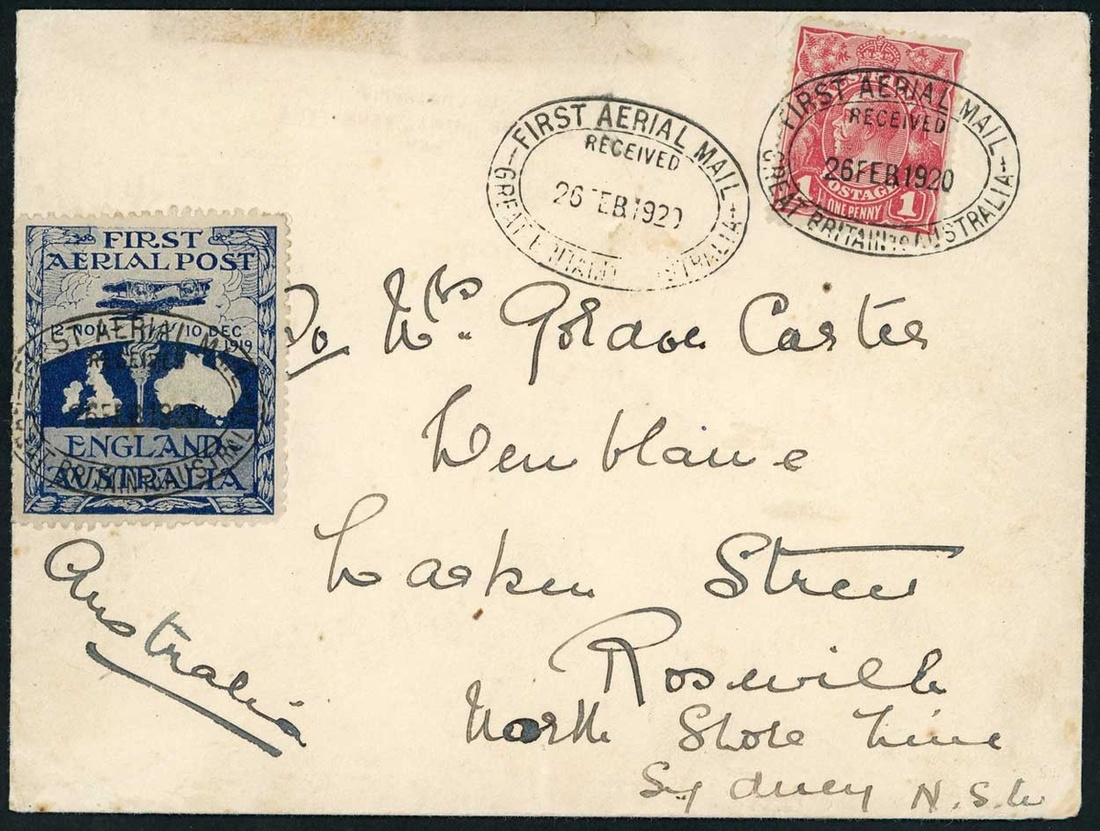 FIRST AERIAL MAIL
RECEIVED
26 FEB 1920
GREAT BRITAIN AUSTRALIA
FIRST AERIAL MAIL
RECEIVED
26 FEB 1920
GREAT BRITAIN to AUSTRALIA
POSTAGE
1 ONE PENNY 1
FIRST
AERIAL POST
12 NOV 10 DEC
1919
ENGLAND
AUSTRALIA
FIRST AERIAL MAIL
RECEIVED
26 FEB 1920
GREAT BRITAIN to AUSTRALIA
Mrs. Gordon Carter
Wenblane
Larken Street
Roseville
North Shore Line
Sydney N.S.W
Australia